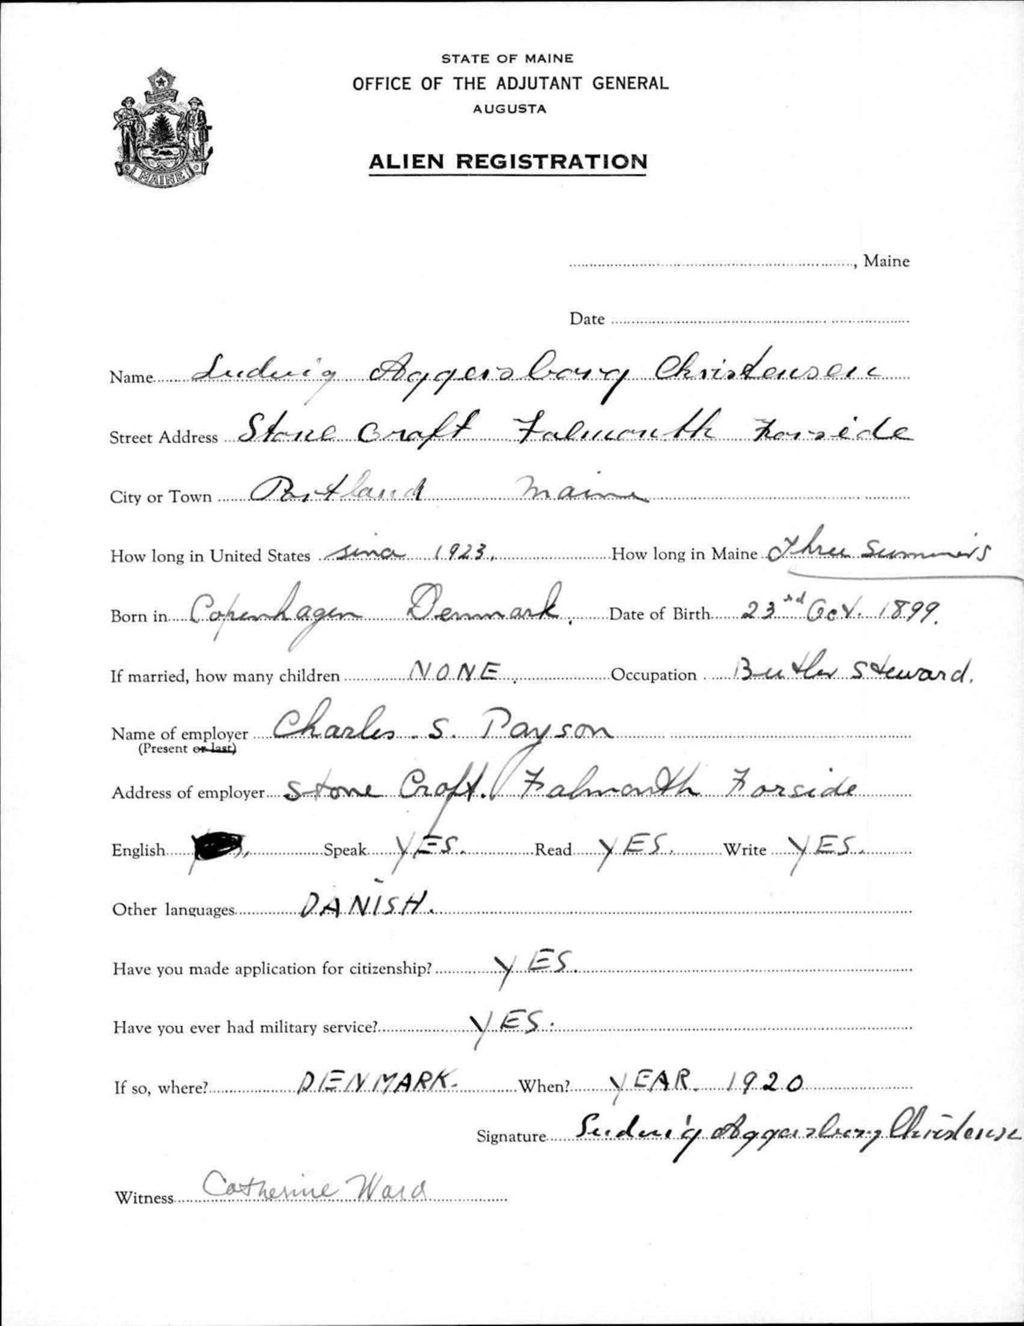 STATE OF MAINE
OFFICE OF THE ADJUTANT GENERAL
AUGUSTA
ALIEN REGISTRATION
MAINE
, Maine
Date
Name Ludwig Aggersborg Christensen
Street Address Stone Craft Falmouth Forside
City or Town Portland Maine
How long in United States since 1923. How long in Maine Three Summers
Born in Copenhagen Denmark. Date of Birth 23rd Oct. 1899.
If married, how many children NONE. Occupation Butler Steward.
Name of employer Charles S. Payson
(Present or last)
Address of employer Stone Croft. Falmouth Forside
English Speak YES. Read YES. Write YES.
Other languages DANISH.
Have you made application for citizenship? YES.
Have you ever had military service? YES.
If so, where? DENMARK. When? YEAR. 1920
Signature Ludwig Aggersborg Christensen
Witness Catherine Ward